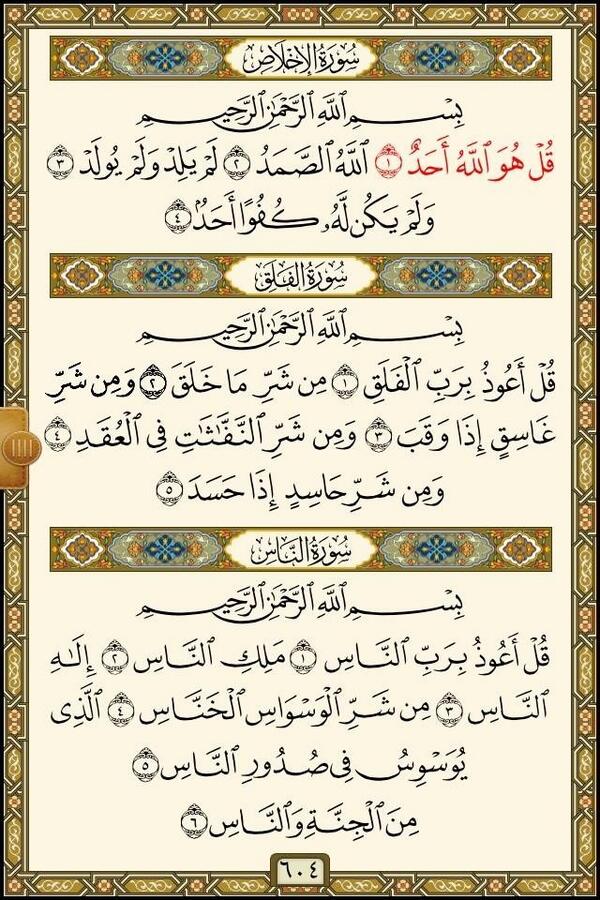 سُورَةُ الإِخْلَاصِ
بِسْمِ ٱللَّهِ ٱلرَّحْمَٰنِ ٱلرَّحِيمِ
قُلْ هُوَ ٱللَّهُ أَحَدٌ ١ ٱللَّهُ ٱلصَّمَدُ ٢ لَمْ يَلِدْ وَلَمْ يُولَدْ ٣
وَلَمْ يَكُن لَّهُۥ كُفُوًا أَحَدٌۢ ٤
سُورَةُ الفَلَقِ
بِسْمِ ٱللَّهِ ٱلرَّحْمَٰنِ ٱلرَّحِيمِ
قُلْ أَعُوذُ بِرَبِّ ٱلْفَلَقِ ١ مِن شَرِّ مَا خَلَقَ ٢ وَمِن شَرِّ
غَاسِقٍ إِذَا وَقَبَ ٣ وَمِن شَرِّ ٱلنَّفَّٰثَٰتِ فِى ٱلْعُقَدِ ٤
وَمِن شَرِّ حَاسِدٍ إِذَا حَسَدَ ٥
سُورَةُ النَّاسِ
بِسْمِ ٱللَّهِ ٱلرَّحْمَٰنِ ٱلرَّحِيمِ
قُلْ أَعُوذُ بِرَبِّ ٱلنَّاسِ ١ مَلِكِ ٱلنَّاسِ ٢ إِلَٰهِ
ٱلنَّاسِ ٣ مِن شَرِّ ٱلْوَسْوَاسِ ٱلْخَنَّاسِ ٤ ٱلَّذِى
يُوَسْوِسُ فِى صُدُورِ ٱلنَّاسِ ٥
مِنَ ٱلْجِنَّةِ وَٱلنَّاسِ ٦
٦٠٤